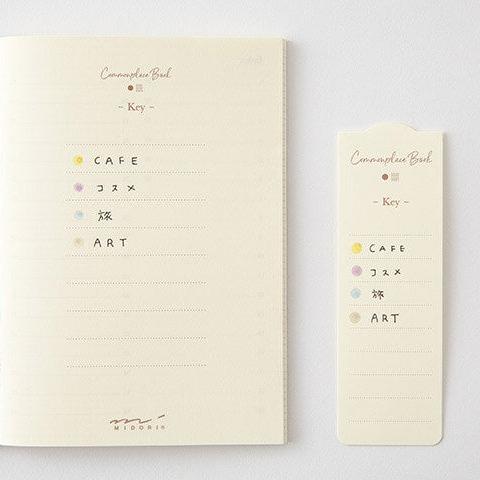 Commonplace Book
- Key -
CAFE
コスメ
旅
ART
MIDORI
Commonplace Book
- Key -
CAFE
コスメ
旅
ART